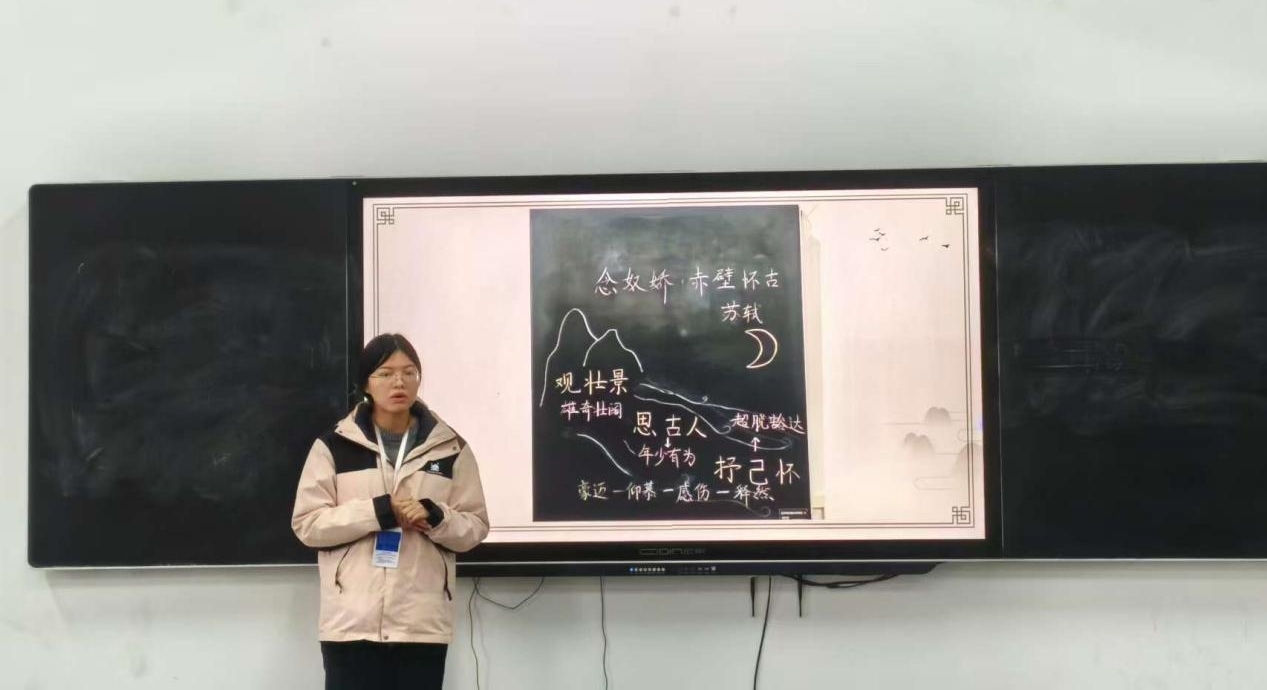 念奴娇·赤壁怀古
苏轼
观壮景
雄奇壮阔
思古人
年少有为
超脱豁达
↑
抒己怀
豪迈－仰慕－感伤－释然